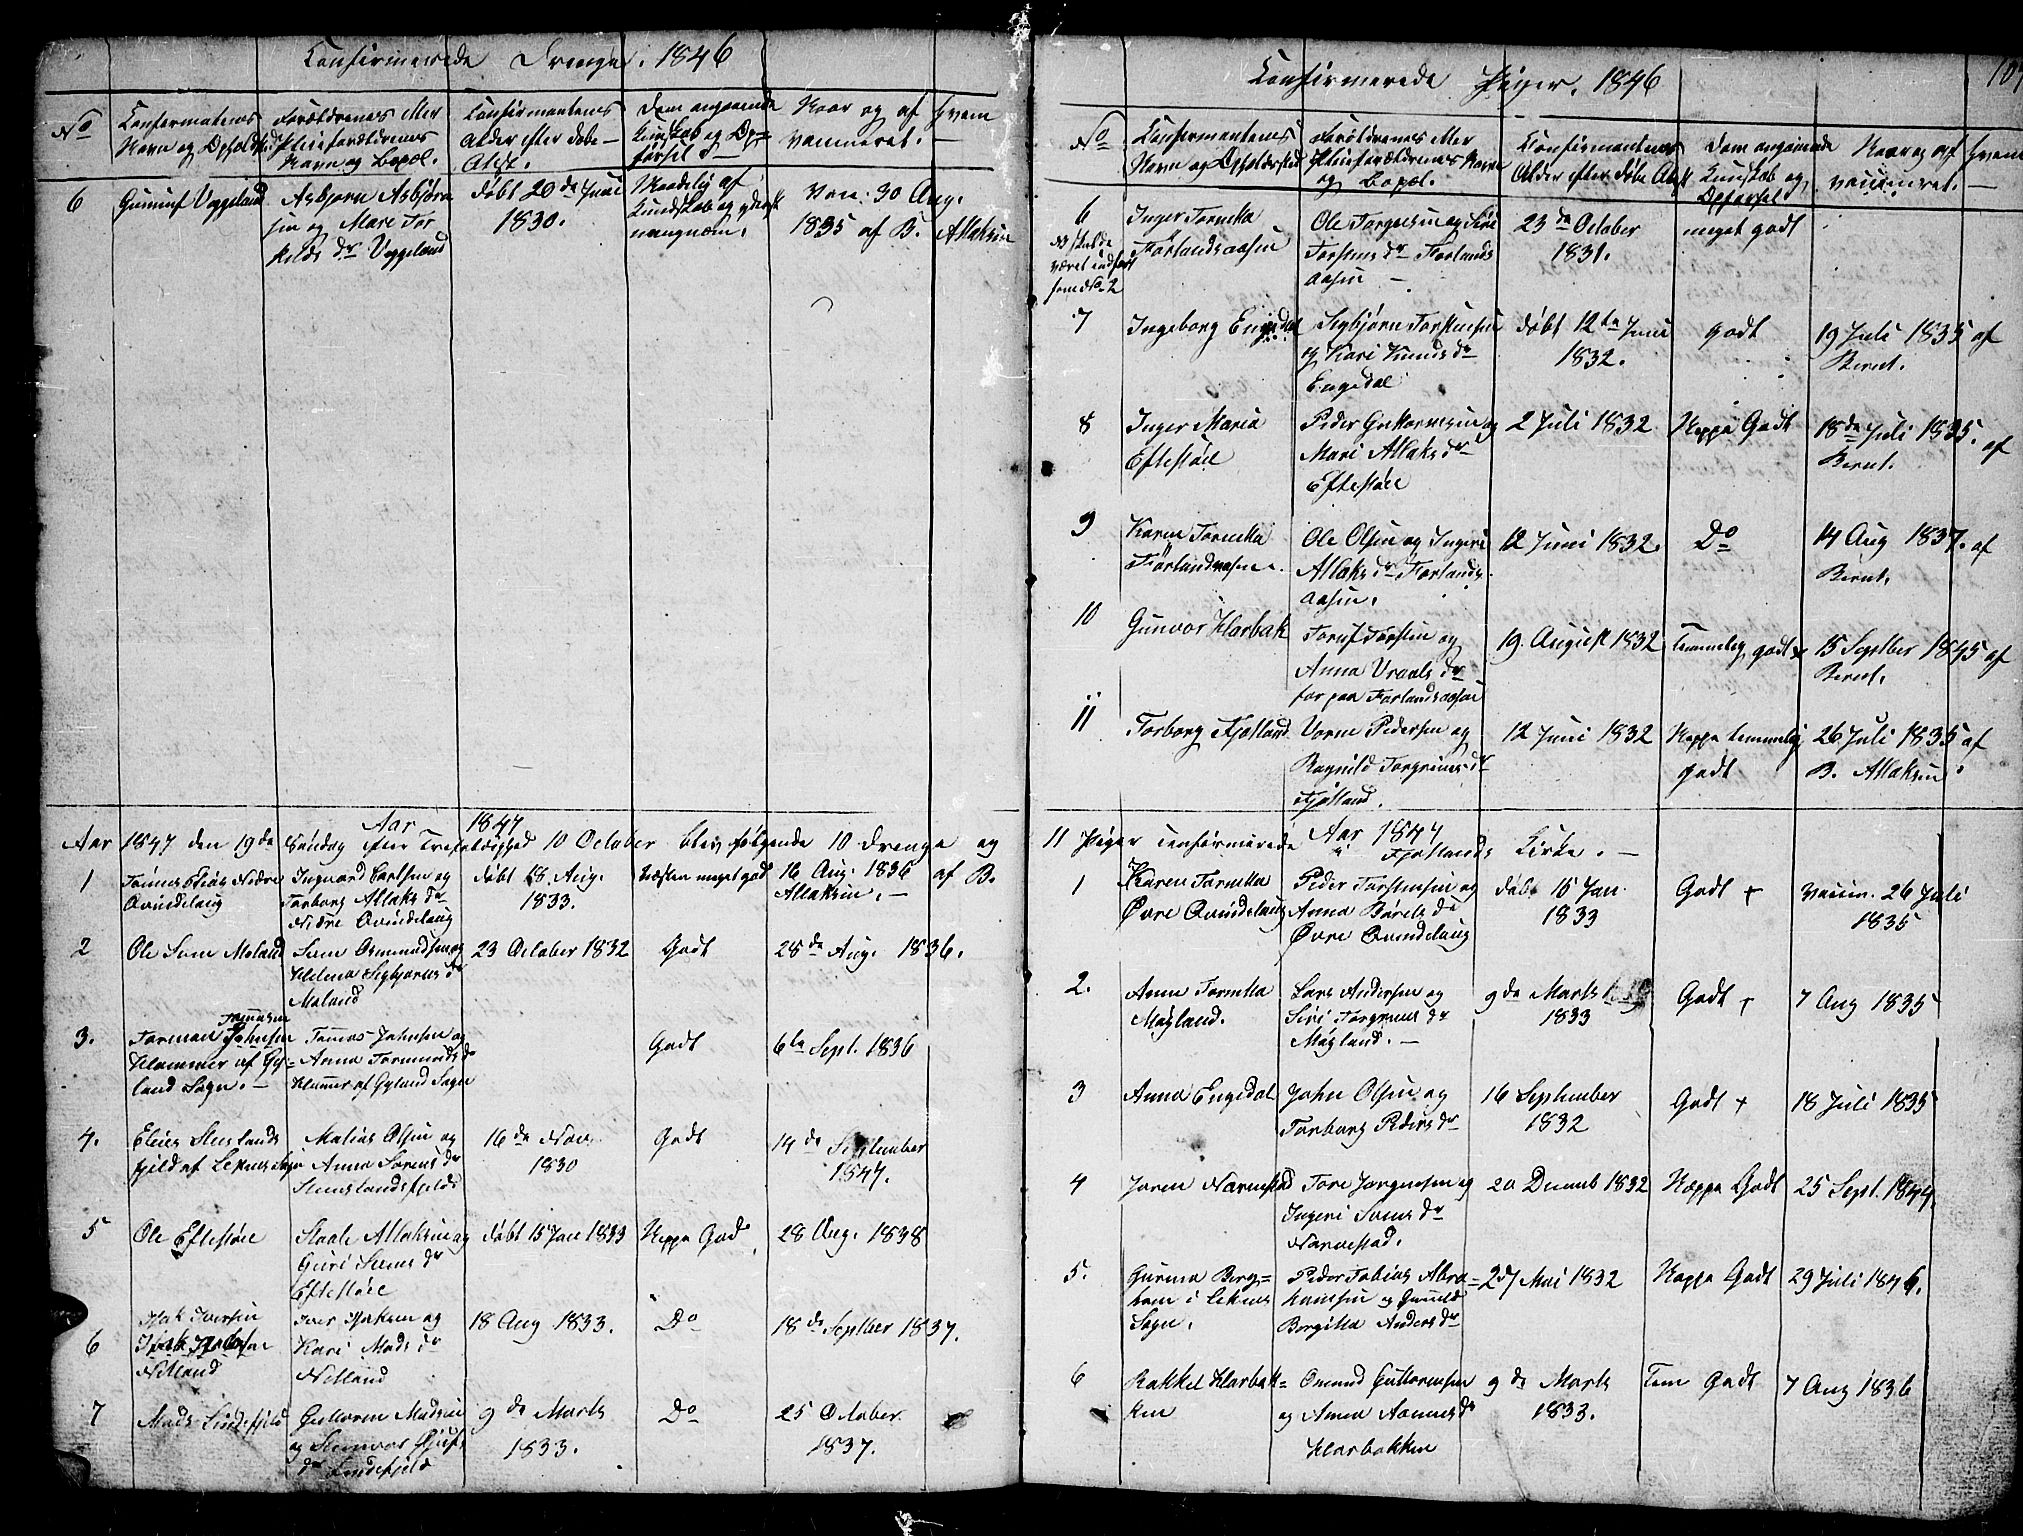 Confirmerede Drenge. 1846
No
Confirmatens
Navn og Opholdsted
Forældrenes eller
Pleieforældrenes
Navn og Bopæl.
Confirmantens
Alder efter Døbe-
Attest.
Dem angaaende
Kundskab og Op-
førsel
Naar og af hvem
vaccineret. —
6
Gunuf Veggeland
Asbjørn Asbjørn
sen og Mari Tor
kelds dr Veggeland
døbt 20de Juni
1830.
Maadelig af
Kundskab og
Vac: 30 Aug.
1835 af B. Atlaksen
Aar 1847
Aar 1847 den 19de Søndag efter Trefoldighed 10 October blev følgende 10 Drenge og
1
Tønnes Elias Nedre
Qvindelaug
Ingvard Carlsen og
Torborg Atlaks dr
Nedre Qvindelaug
døbt 18 Aug.
1833.
Næsten meget god
16 Aug. 1836 af B.
Atlaksen. —
2
Ole Sven Moland
Sven Osmundsen og
Helena Sigbjørns dr
Moland
23 October 1832
Godt
28de Aug. 1836.
3.
Tønnesen
Torman Johnsen
Hammer af Gy-
land Sogn. —
Tønnes Johnsen og
Anna Tormunds dr
Hammer af Gyland Sogn
Godt
6te Sept. 1836
4.
Elias Stuslands
fjeld af Lekens Sogn
Matias Olsen og
Anna Sørens dr
Stenslandsfjeld
16de Nov.
1830
Godt
14de September
1847.
5
Ole Eftestøle
Staale Atlaksen og
Guri Svens dr
Eftestøle
døbt 15 Jan 1833
Neppe God
28 Aug. 1838
6
Isak Iversen
Netland
Iver Isaksen og
Kari Mads dr
Netland
18 Aug 1833.
Do
18de Septber 1837.
7
Mads Lindefjeld
Guttorm Madsen
og Stenvor Sjurs
dr Lindefjeld
9de Marts
1833.
Do
25 October
1837.
Confirmerede Piger. 1846
107
No
Confirmantens
Navn og Opholdsted
Forældrenes eller
Pleieforældrenes Navn
og Bopæl.
Confirmantens
Alder efter Døbe Attest
Dem angaaende
Kundskab og
Opførsel
Naar og af hvem
vaccineret. —
6
No skulde
været indført
som No 2
Inger Tornetta
Førlandsaasen
Ole Torgersen og Siri
Torstens dr Førlands
aasen —
23de October
1831.
meget godt
7
Ingeborg Engedal
Sigbjørn Torstensen
og Kari Knuds dr
Engedal
døbt 12te Juni
1832.
godt
19 Juli 1835 af
Bernt.
8
Inger Maria
Eftestøl
Peder Guttormsen og
Mari Atlaks dr
Eftestøle
2 Juli 1832
Neppe Godt
18de Juli 1835. af
Bernt.
9
Karen Tornetta
Førlandsaasen.
Ole Olsen og Ingeri
Atlaks dr Førlands
aasen.
12 Juni 1832.
Do
14 Aug 1837. af
Bernt.
10
Gunvor Harbak
Toruf Torsten og
Anna Vraals dr
før paa Førlandsaasen
19. August 1832
Temmelig godt
15 Septber 1845 af
Bernt.
11
Torborg Fjotland
Vorne Pedersen og
Ragnild Torgrims dr
Fjotland.
12 Juni 1832
Neppe temmelig
godt
26 Juli 1835 af
B. Atlaksen.
Aar 1847
11 Piger confirmerede i Fjotlands Kirke. —
1
Karen Tornetta
Øvre Qvindelaug
Peder Torstensen og
Anna Børels dr
Øvre Qvindelaug
døbt 15 Jan
1833
Godt +
Vaccin. 26 Juli
1835
2.
Anne Tornetta
Møgland.
Lars Andersen og
Siri Torgrims dr
Møgland. —
9de Marts
1833
Godt +
7 Aug 1835
3
Anna Engedal
John Olsen og
Torborg Peders dr
16 September
1832
Godt +
18 Juli 1835
4
Joren Narvestad
Tore Jørgensen og
Ingeri Svens dr
Narvestad.
20 Decemb 1832
Neppe Godt
25 Sept. 1844.
5.
Gurina Berg=
hom i Lekens
Sogn.
Peder Tobias Abra=
hamsen og Gunild
Bergitta Anders dr
27 Mai 1832
Neppe Godt
29 Juli 1846.
6
Rakkel Harbak=
ken
Omund Guttormsen
og Anna Aanens dr
Harbakken
9de Marts
1833.
Tem Godt
7 Aug 1836